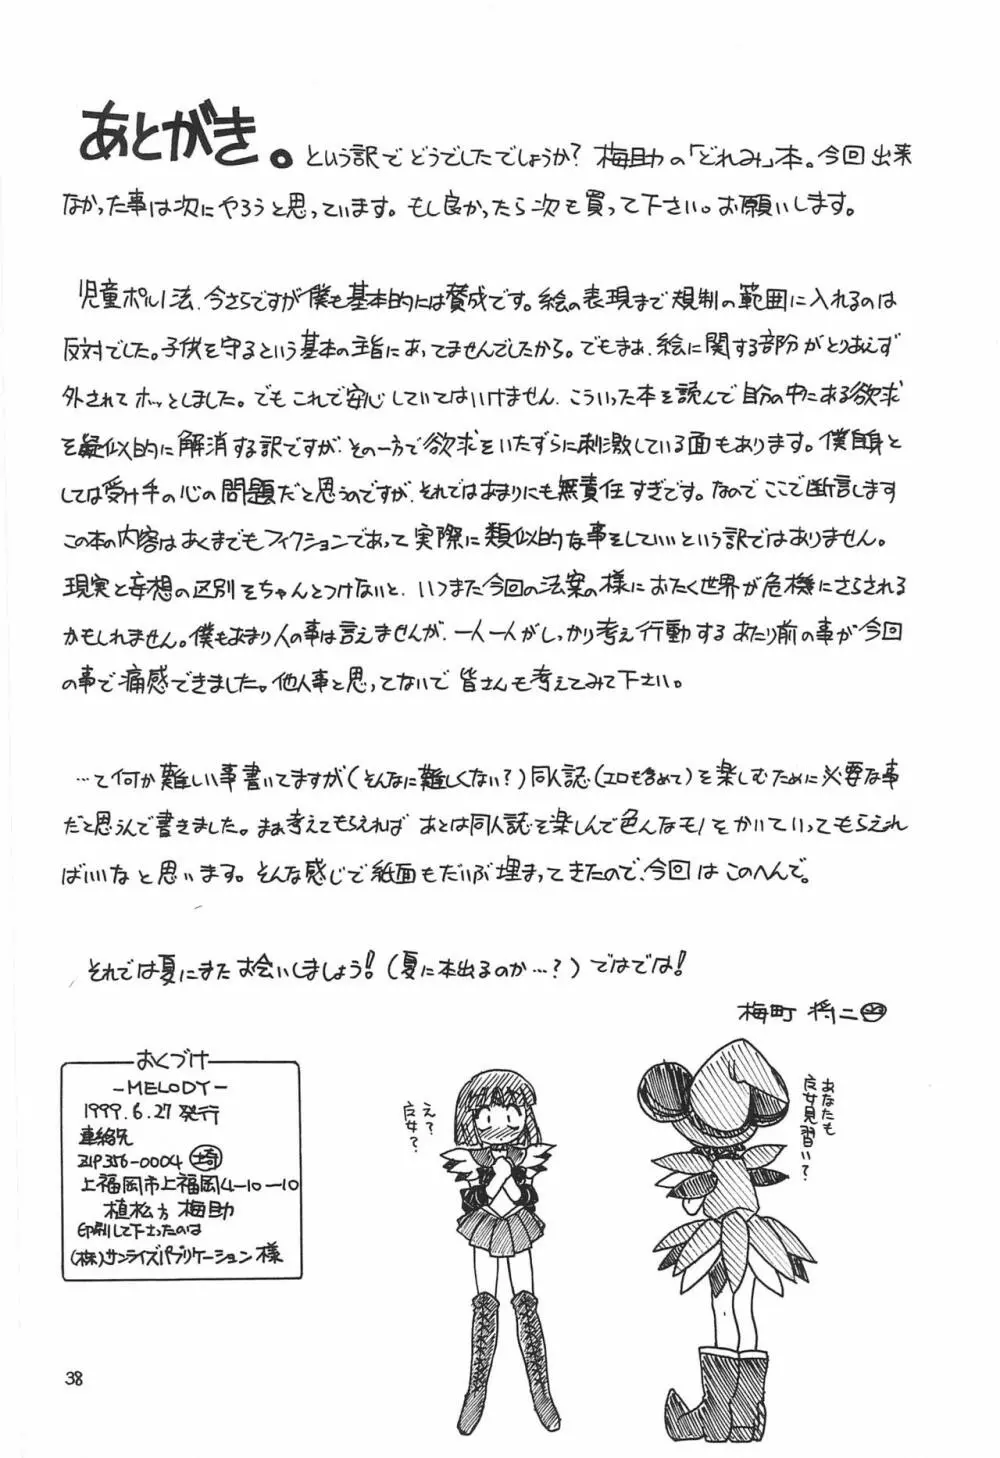 あとがき。という訳でどうでしたでしょうか？ 梅助の「どれみ」本。今回出来
なかった事は次にやろうと思っています。もし良かったら次も買って下さい。お願いします。
児童ポルノ法、今さらですが僕も基本的には賛成です。絵の表現まで規制の範囲に入れるのは
反対でした。子供を守るという基本の主旨にあってませんでしたから。でもまぁ、絵に関する部分がとりあえず
外されてホッとしました。でもこれで安心していてはいけません、こういった本を読んで自分の中にある欲求
を疑似的に解消する訳ですが、その一方で欲求をいたずらに刺激している面もあります。僕自身と
しては受け手の心の問題だと思うのですが、それではあまりにも無責任すぎです。なのでここで断言します
この本の内容はあくまでもフィクションであって実際に類似的な事をしていいという訳ではありません。
現実と妄想の区別をちゃんとつけないと、いつまた今回の法案の様におたく世界が危機にさらされる
かもしれません。僕もあまり人の事は言えませんが、一人一人がしっかり考え行動するあたり前の事が今回
の事で痛感できました。他人事と思ってないで皆さんも考えてみて下さい。
…て何か難しい事書いてますが(そんなに難しくない？)同人誌(エロも含めて)を楽しむために必要な事
だと思うんで書きました。まぁ考えてもらえればあとは同人誌を楽しんで色んなモノをかいていってもらえれ
ばいいなと思います。そんな感じで紙面もだいぶ埋まってきたので、今回はこのへんで。
それでは夏にまたお会いしましょう！(夏に本出るのか…？)ではでは！
梅町 将二
おくづけ
－MELODY－
1999.6.27 発行
連絡先
ZIP356-0004 埼
上福岡市上福岡4-10-10
植松方 梅助
印刷して下さったのは
(株)サンライズパブリケーション様
え？
魔女？
あなたも
魔女見習い？
38